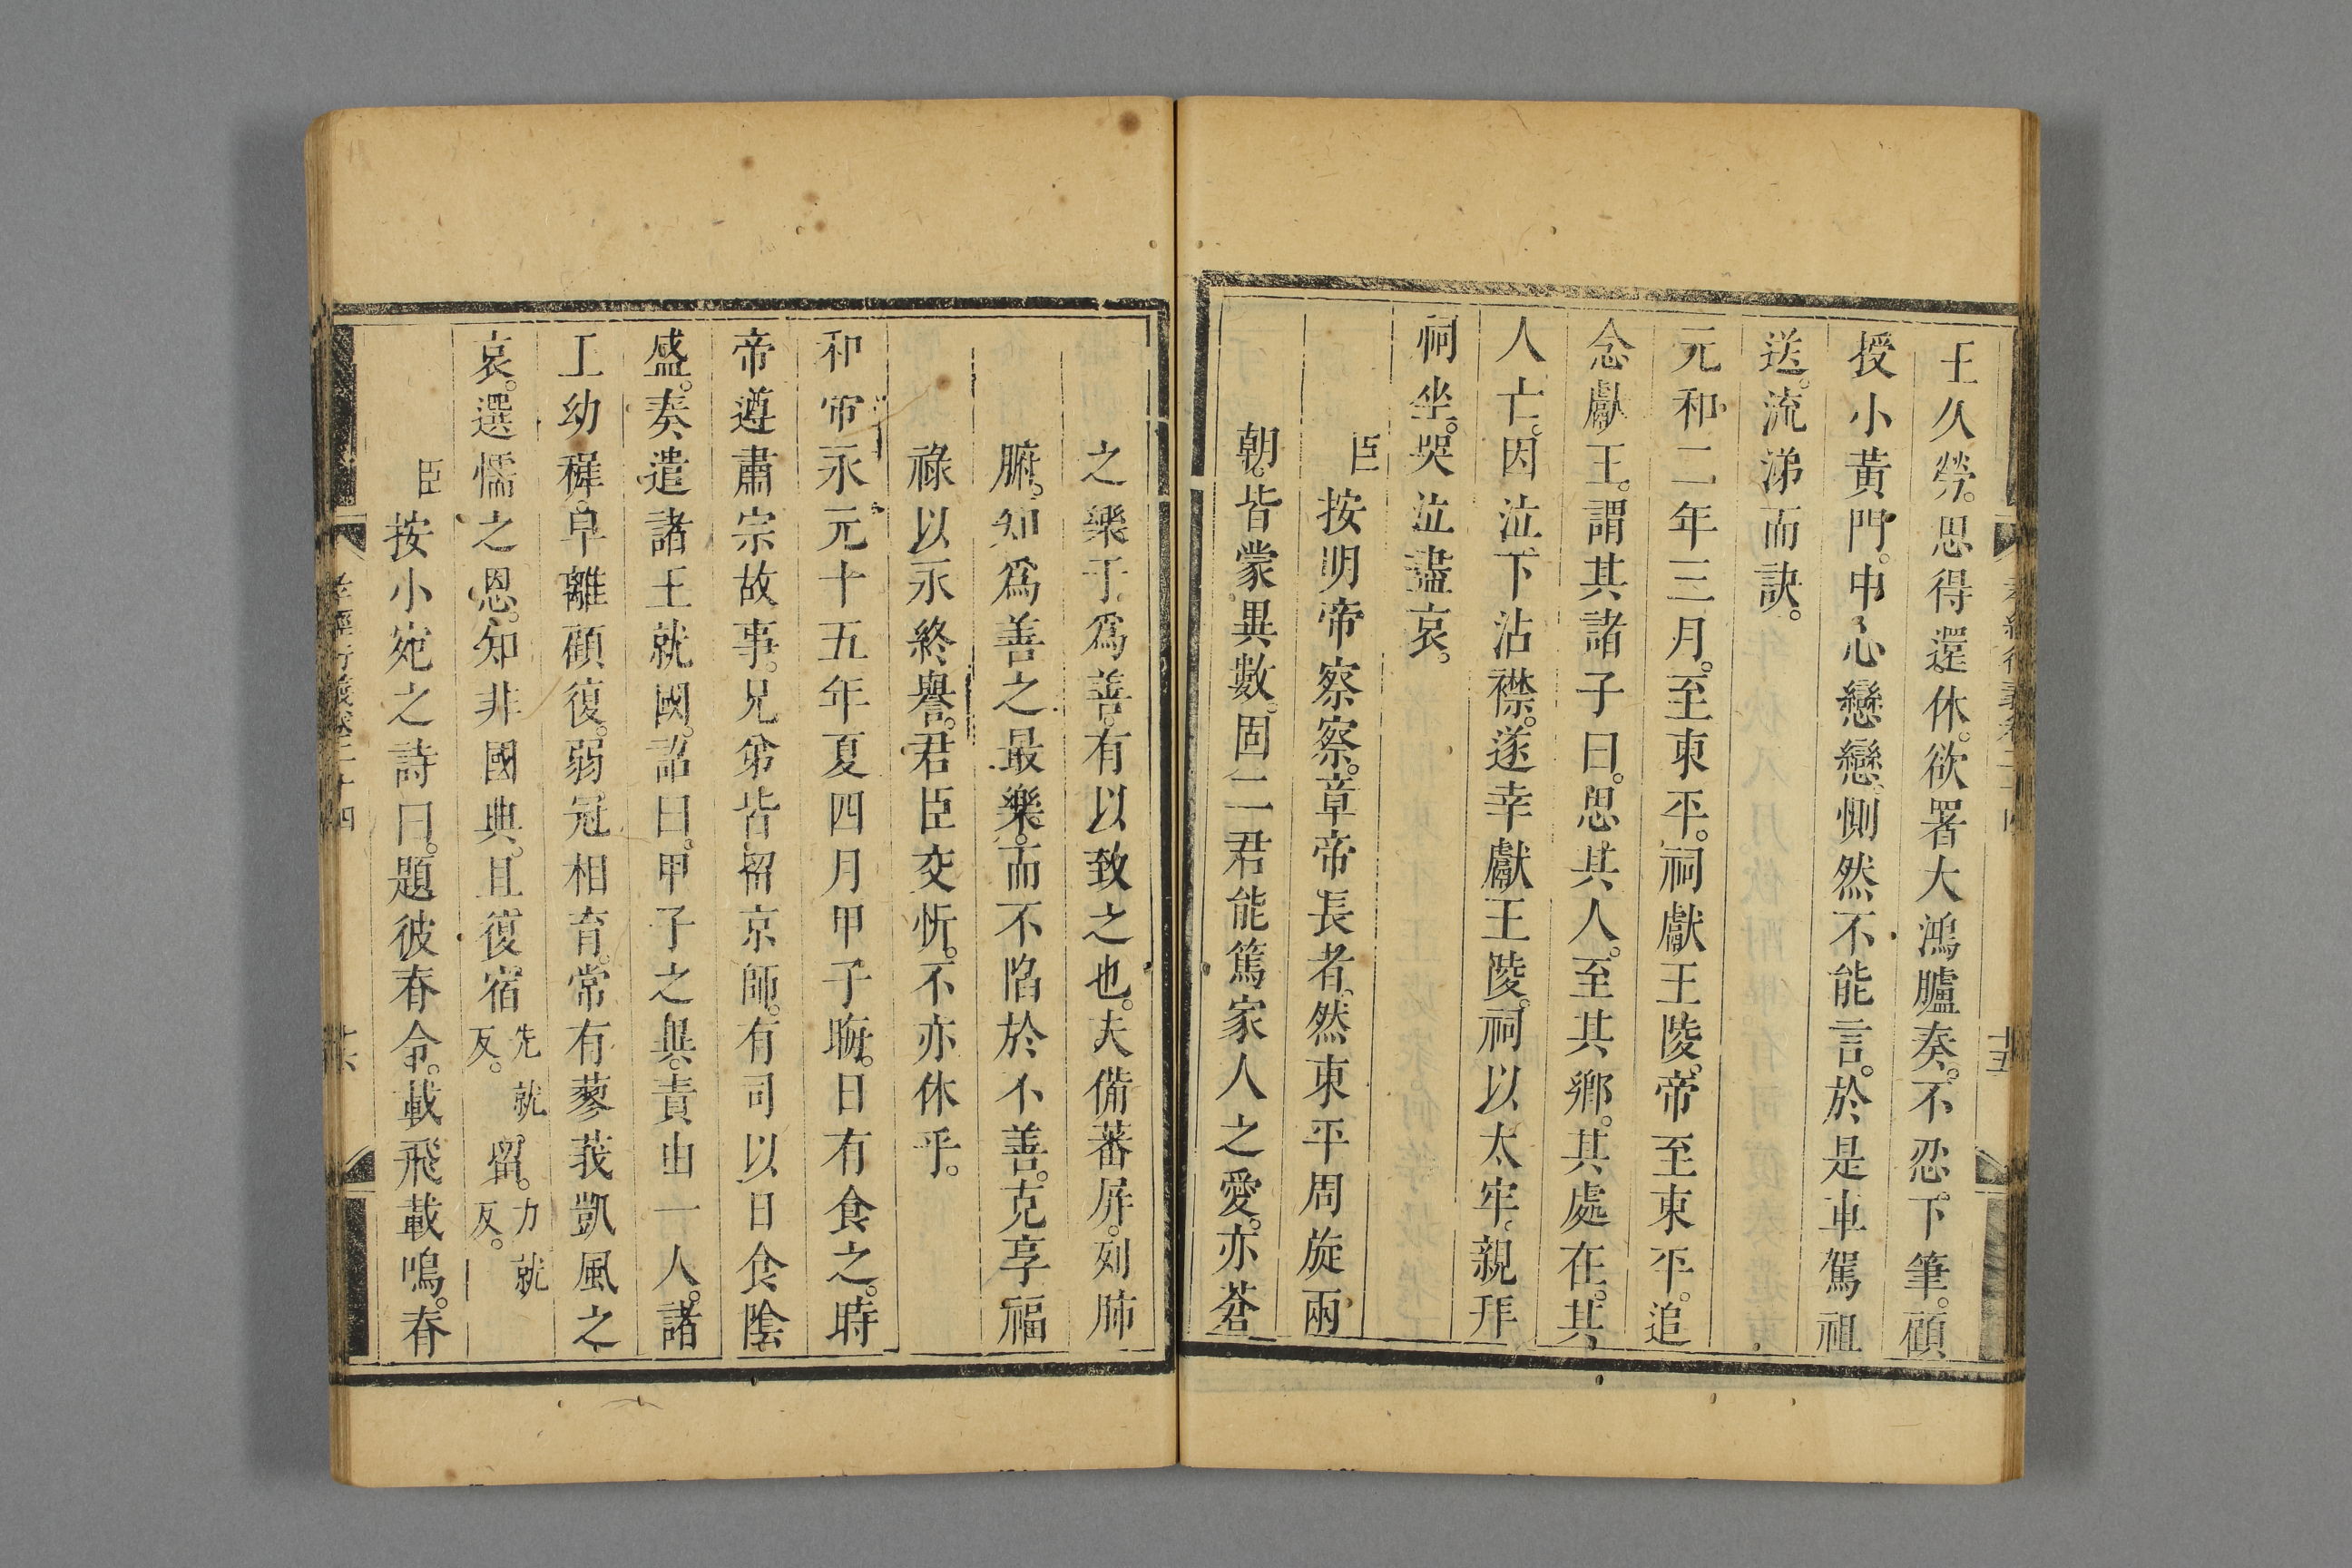 王久勞。思得還休。欲署大鴻臚奏。不忍下筆。顧
授小黃門。中心戀戀。惻然不能言。於是車駕祖
送。流涕而訣。
元和二年三月。至東平。祠獻王陵。帝至東平。追
念獻王。謂其諸子曰。思其人。至其鄉。其處在。其
人亡。因泣下沾襟。遂幸獻王陵。祠以太牢。親拜
祠坐。哭泣盡哀。
臣按明帝察察。章帝長者。然東平周旋兩
朝。皆蒙異數。固二君能篤家人之愛。亦蒼
之樂于爲善。有以致之也。夫備蕃屏。列肺
腑。知爲善之最樂。而不陷於不善。克享福
祿以永終譽。君臣交忻。不亦休乎。
和帝永元十五年夏四月甲子晦。日有食之。時
帝遵肅宗故事。兄弟皆留京師。有司以日食陰
盛。奏遣諸王就國。詔曰。甲子之異。責由一人。諸
王幼穉。早離顧復。弱冠相育。常有蓼莪凱風之
哀。選懦之恩。知非國典。且復宿先就反。留。力就反。
臣按小宛之詩曰。題彼脊令。載飛載鳴。脊
孝經衍義卷二十四
十六
十五